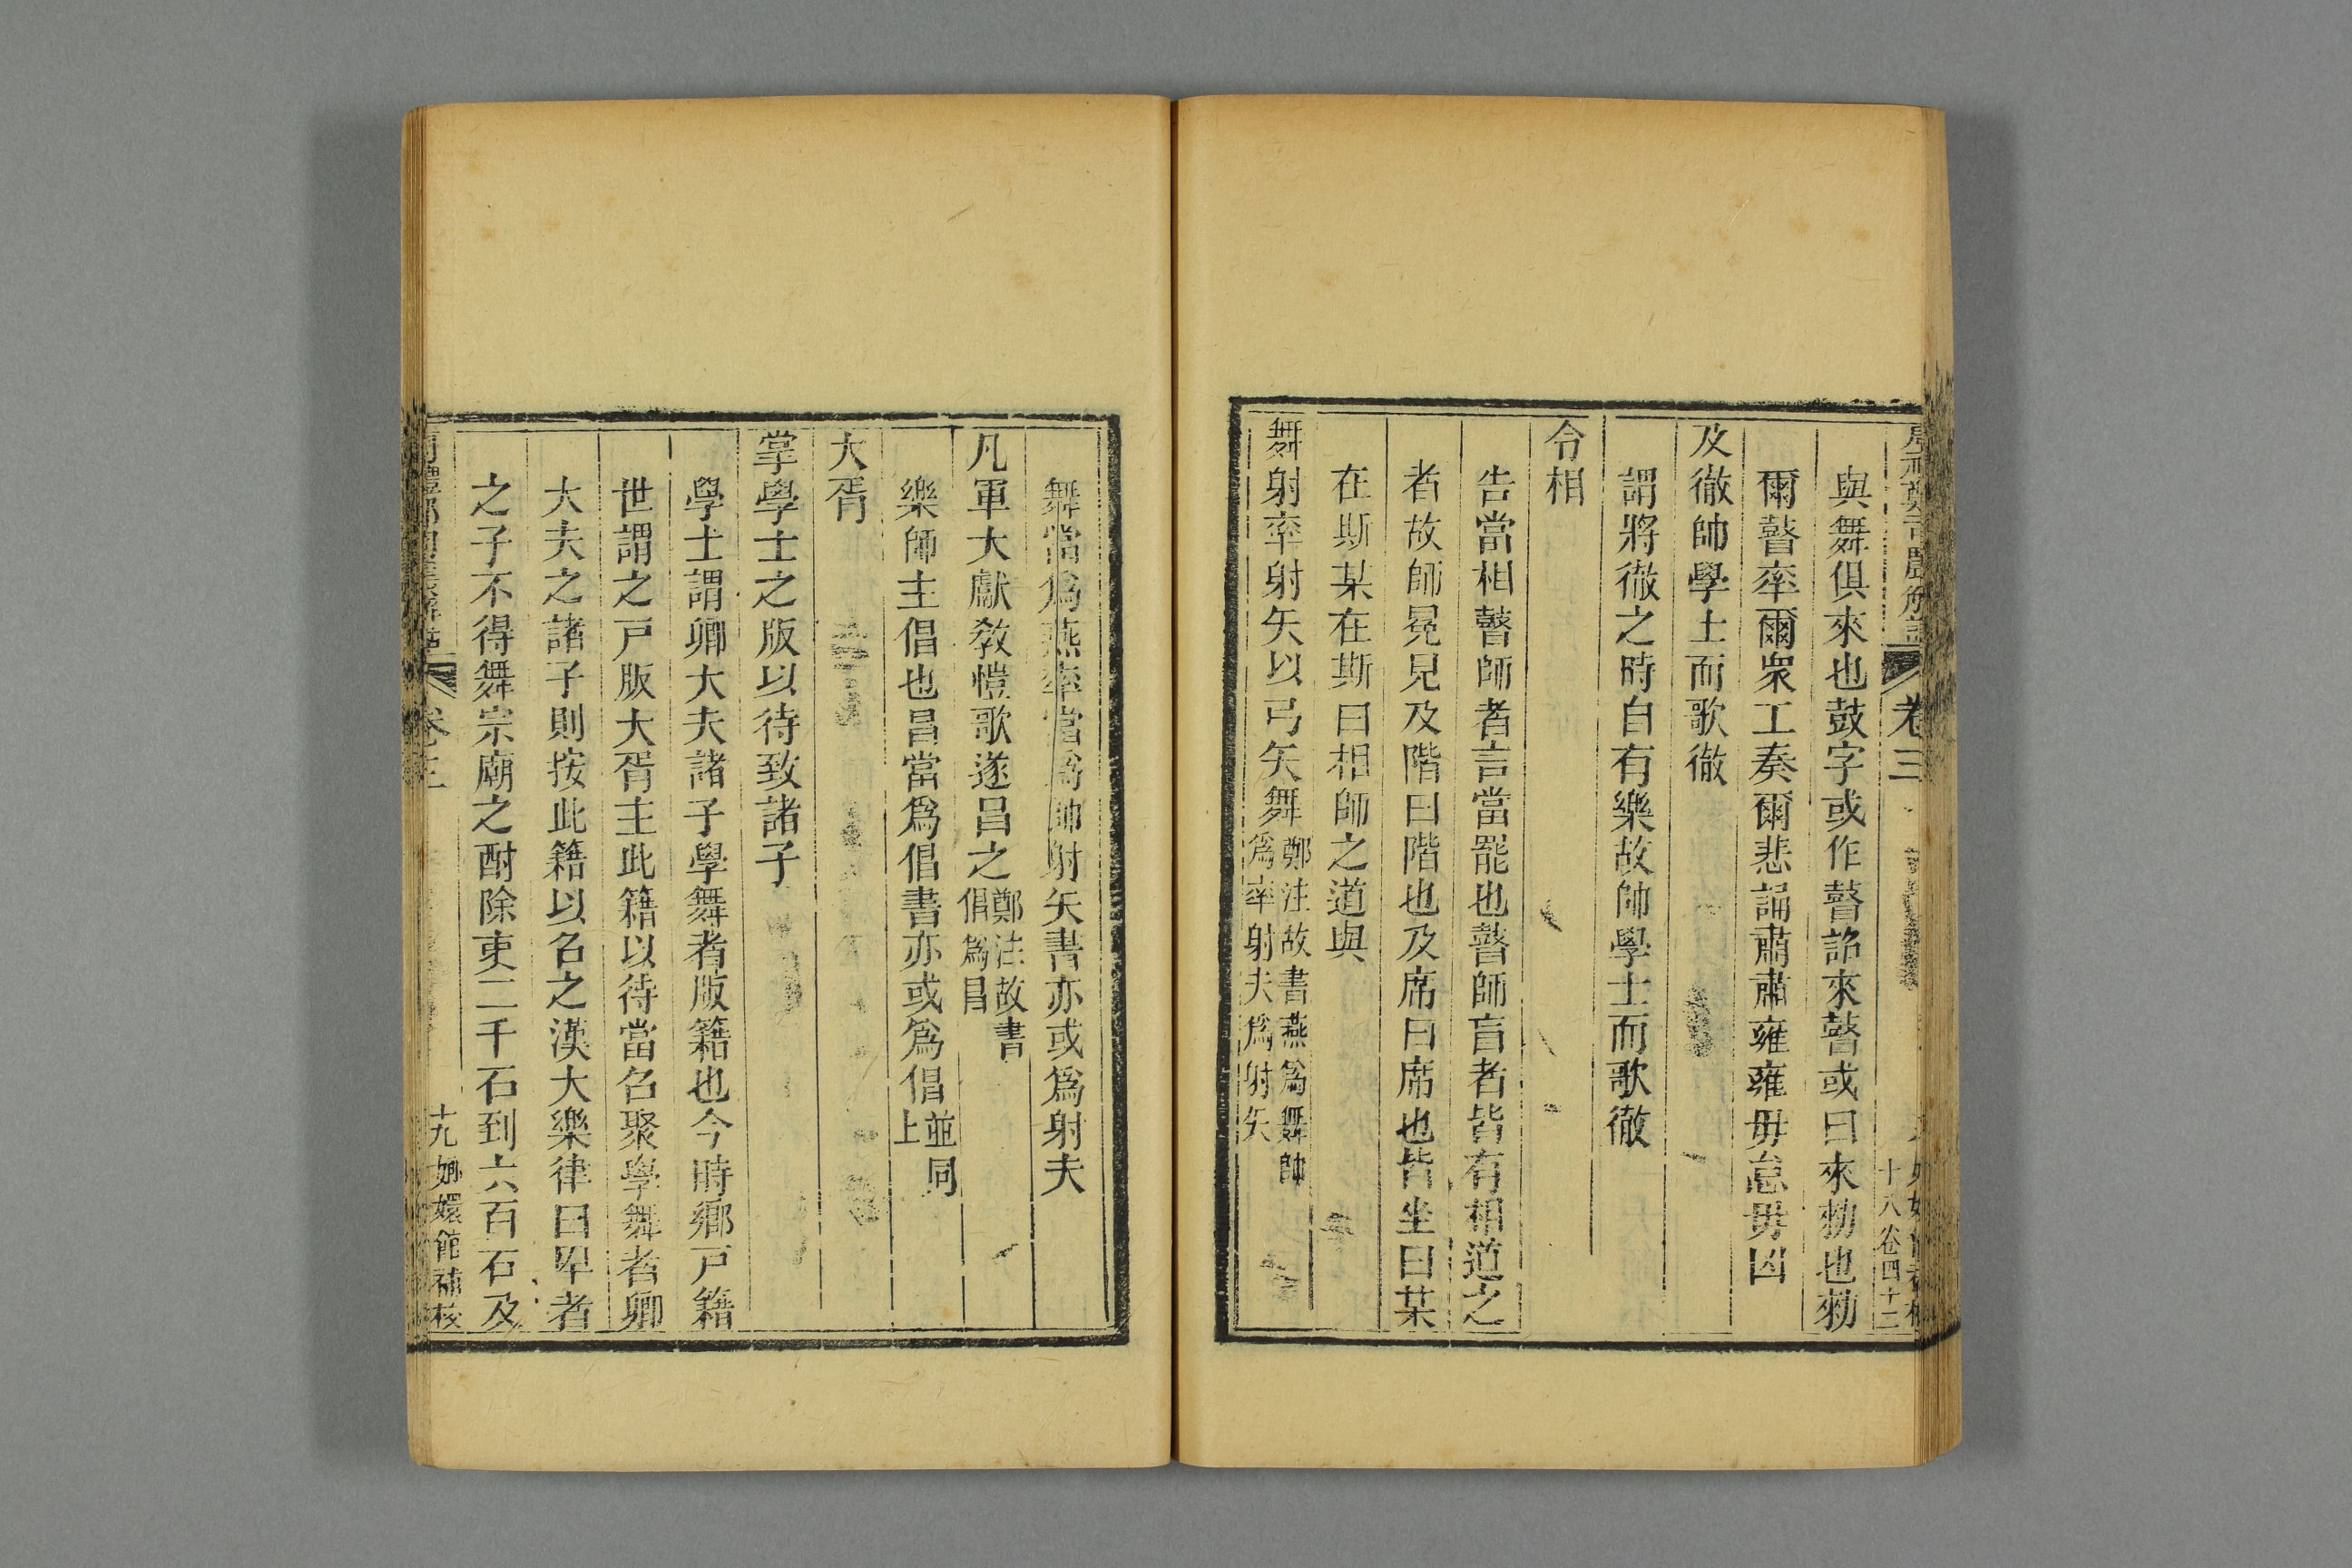 卷三
十八卷四十二
與舞俱來也鼓字或作瞽詔來瞽或曰來勑也勑
爾瞽率爾衆工奏爾悲誦肅肅雍雍毋怠毋凶
及徹帥學士而歌徹
謂將徹之時自有樂故帥學士而歌徹
令相
告當相瞽師者言當罷也瞽師盲者皆有相道之
者故師冕見及階曰階也及席曰席也皆坐曰某
在斯某在斯曰相師之道與
舞射率射矢以弓矢舞鄭注故書燕爲舞帥
爲率射夫爲射矢
舞當爲燕率當爲帥射矢書亦或爲射夫
凡軍大獻敎愷歌遂昌之鄭注故書
倡爲昌
樂師主倡也昌當爲倡書亦或爲倡並同
上
大胥
掌學士之版以待致諸子
學士謂卿大夫諸子學舞者版籍也今時鄉戸籍
世謂之戸版大胥主此籍以待當召聚學舞者卿
大夫之諸子則按此籍以召之漢大樂律曰卑者
之子不得舞宗廟之酎除吏二千石到六百石及
卷三
十九 嫏嬛館補校